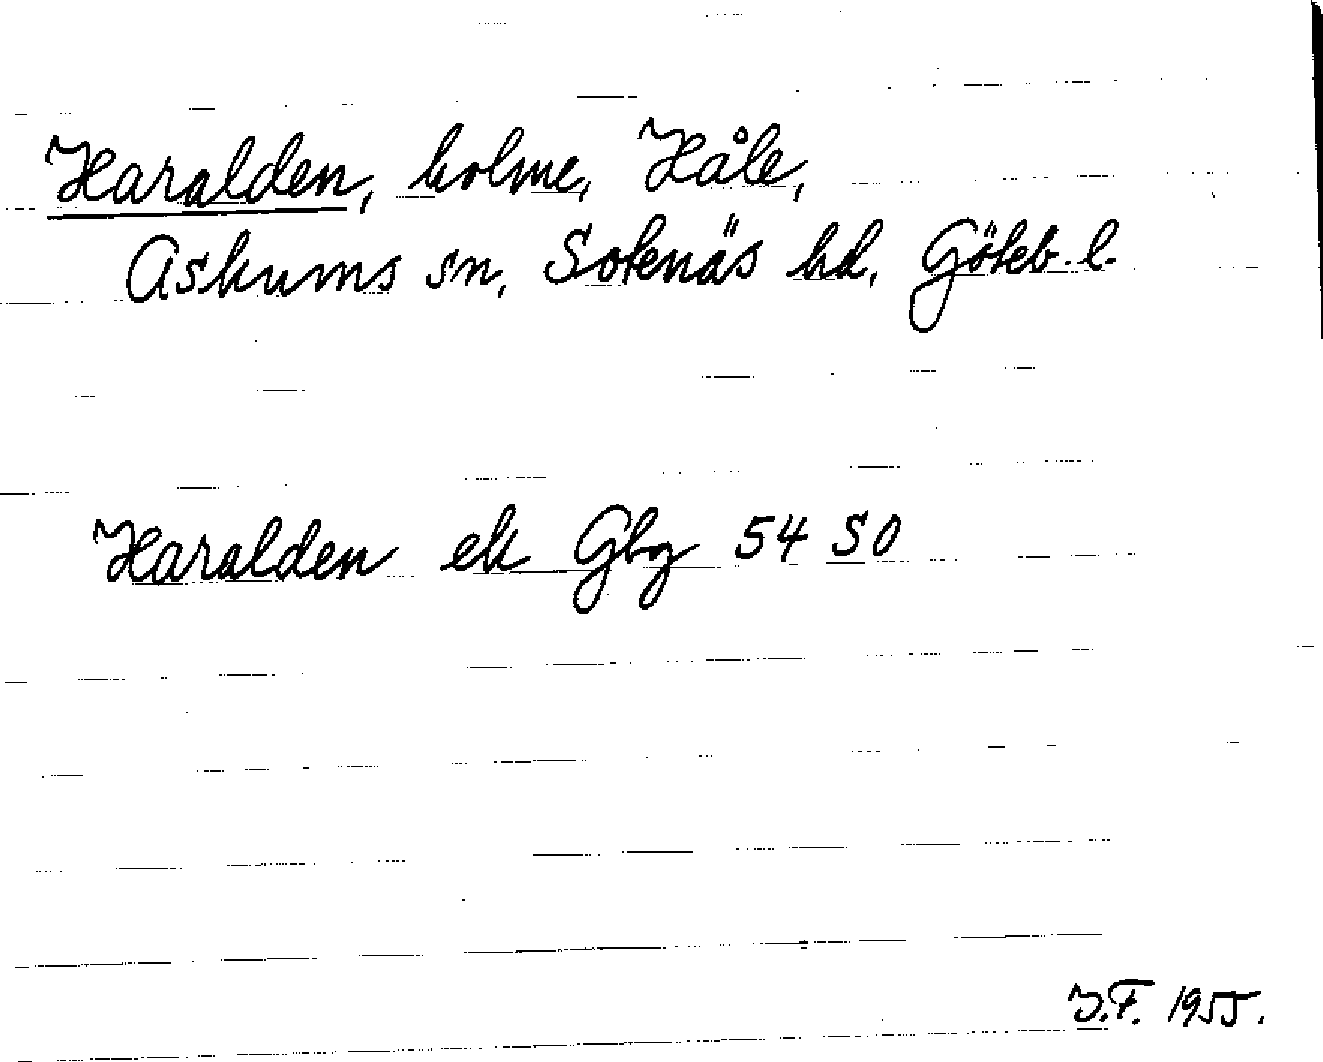 Haralden, holme, Håle,
Askums sn, Sotenäs hd, Göteb. l.
Haralden ek Gbg 54 SO
J.F. 1955.